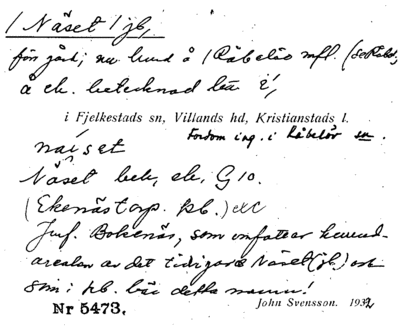 / Näset / jb,
förr gård; nu hmd å / Råbelöv mfl. (se Råb.;
å ek. betecknad
i Fjelkestads sn, Villands hd, Kristianstads l.
Fordom ing. i Råbelöv sn.
näiset
Näset bek, ek, G10.
(Ekenästorp. kb.) etc
Jmf. Bokenäs, som omfattar hmmd-
arealen av det tidigare Näset (jb.) och
som i kb. bär detta namn!
Nr 5473. John Svensson. 1932